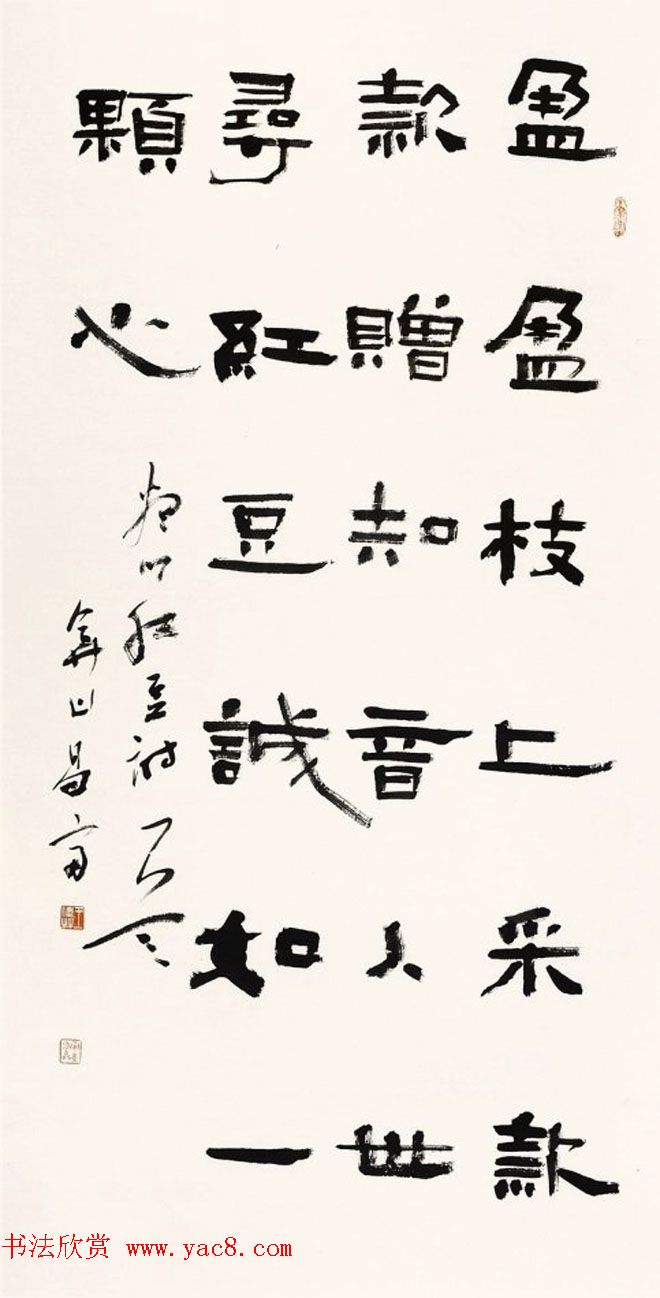 盈盈枝上采款
款贈知音人世
尋紅豆誠如一
顆心
紅豆詩
弇山昌富
书法欣赏 www.yac8.com